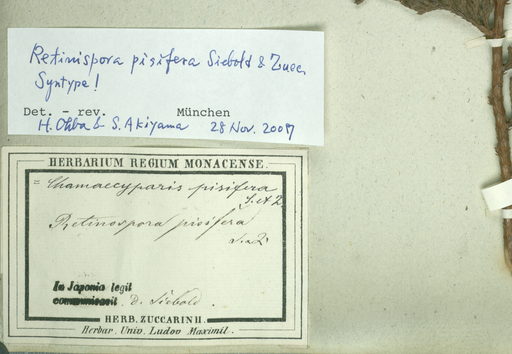 Retinispora pisifera Siebold & Zucc.
Syntype!
Det. - rev. München
H. Ohba & S. Akiyama 28 Nov. 2007
HERBARIUM REGIUM MONACENSE.
= Chamaecyparis pisifera
S. et Z.
Retinospora pisifera
S. & Z.
In Japonia legit
communicavit D. Siebold.
HERB. ZUCCARINII.
Herbar. Univ. Ludov Maximil.